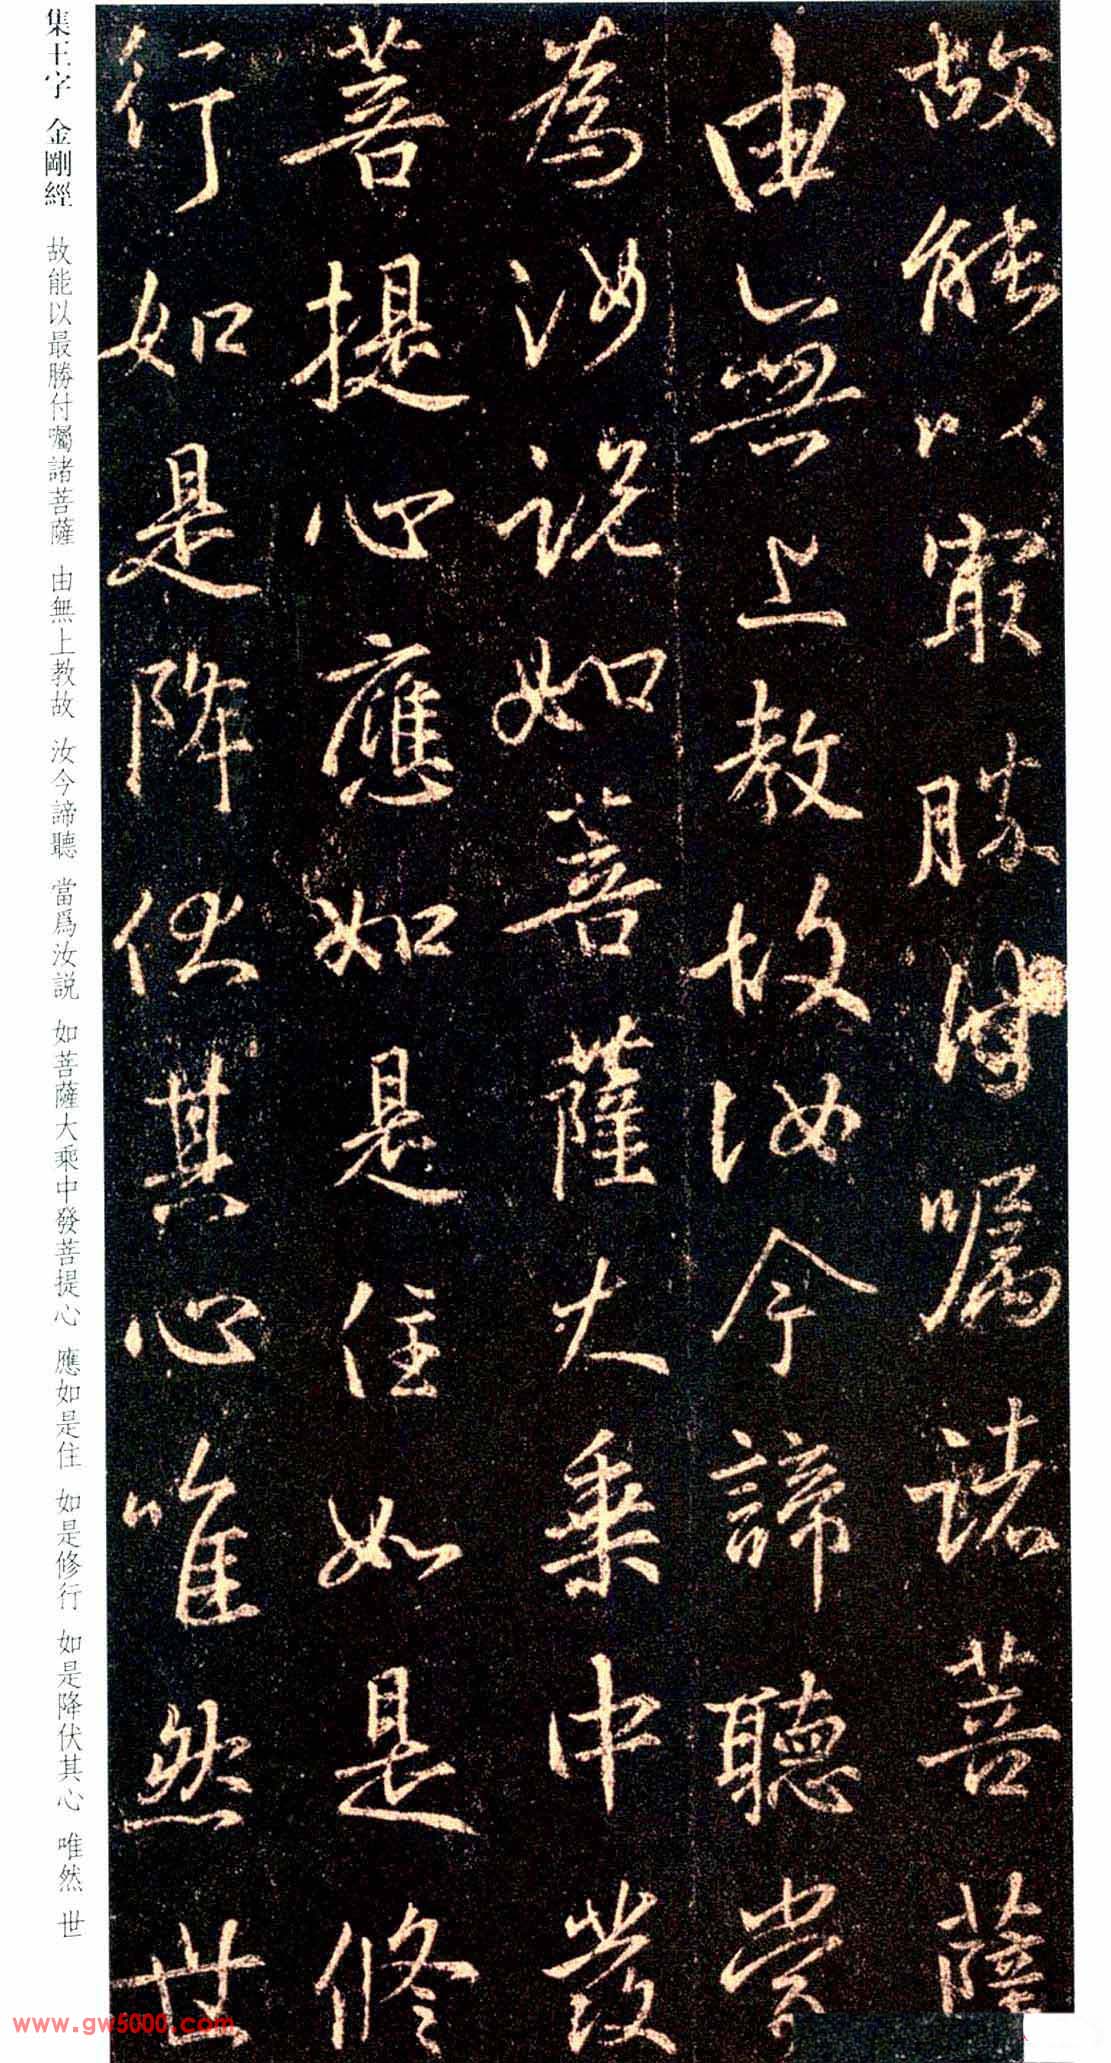 故能以最勝付囑諸菩薩
由無上教故汝今諦聽當
為汝説如菩薩大乘中發
菩提心應如是住如是修
行如是降伏其心唯然世
集王字 金剛經 故能以最勝付囑諸菩薩 由無上教故 汝今諦聽 當爲汝説 如菩薩大乘中發菩提心 應如是住 如是修行 如是降伏其心 唯然 世
www.gw5000.com